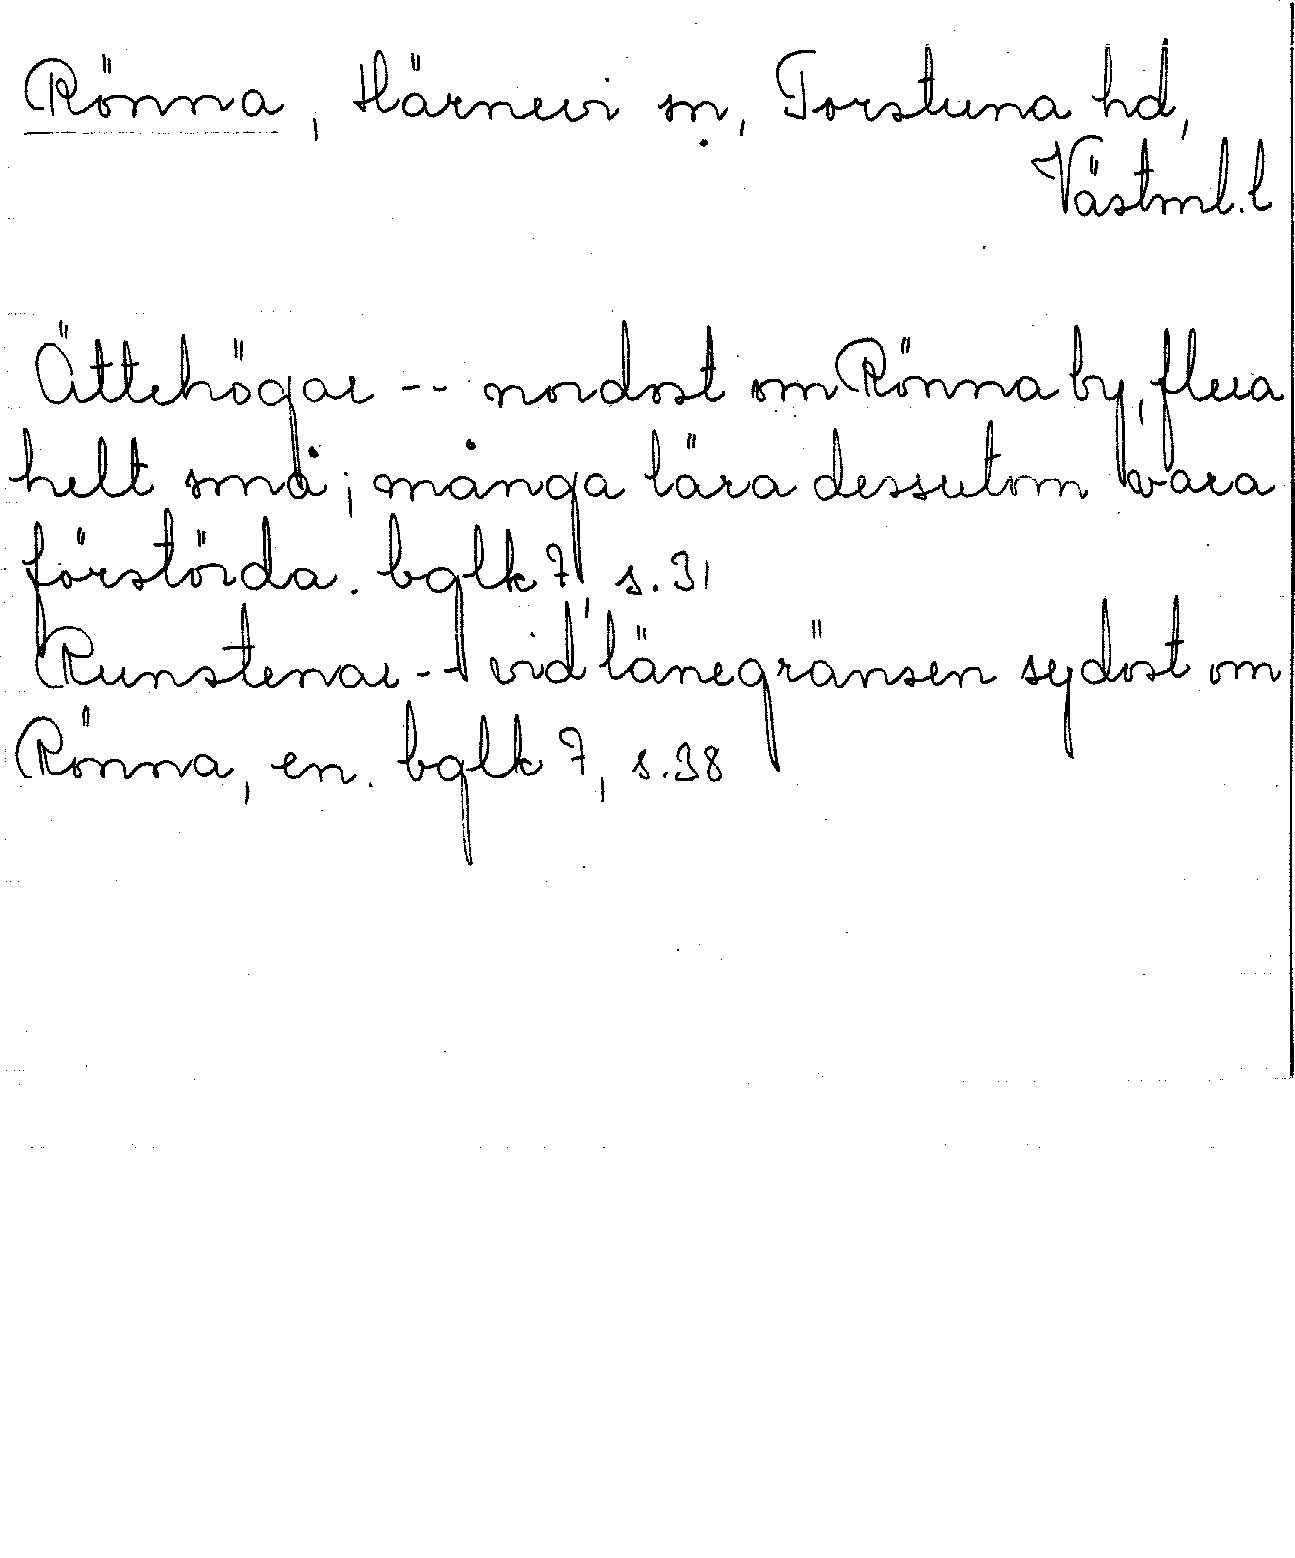 Rönna, Härnevi sn, Torstuna hd,
Västml.l
Ättehögar -- nordost om Rönna by, flera
helt små; många lära dessutom vara
förstörda. bglk 7, s.31
Runstenar -- vid länegränsen sydost om
Rönna, en. bglk 7, s.38